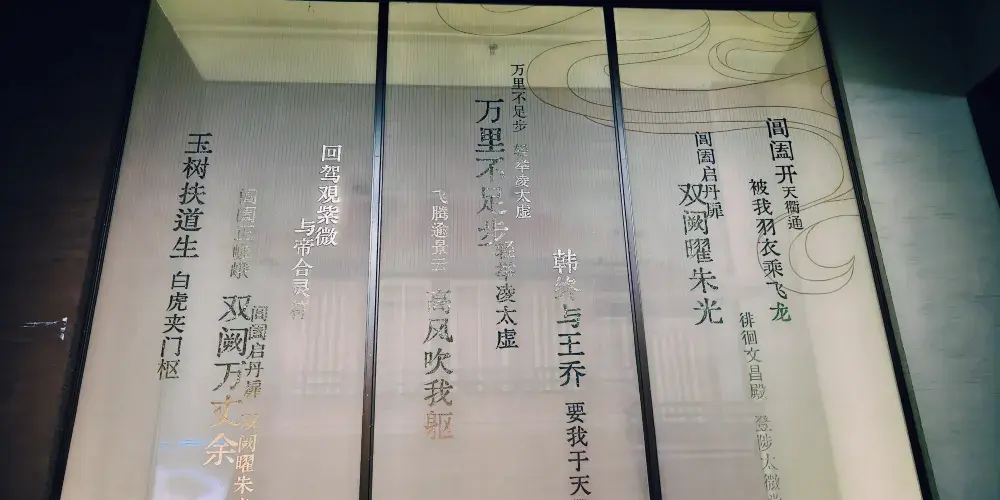 阊阖开 天衢通
被我羽衣乘飞龙
阊阖启丹扉
双阙曜朱光
徘徊文昌殿 登陟太微
韩终与王乔 要我于天
万里不足步 轻举凌太虚
万里不足步 轻举凌太虚
飞腾逾景云
高风吹我躯
回驾观紫微
与帝合灵符
阊阖启丹扉 双阙曜朱
阊阖正嵯峨
双阙万丈余
玉树扶道生 白虎夹门枢